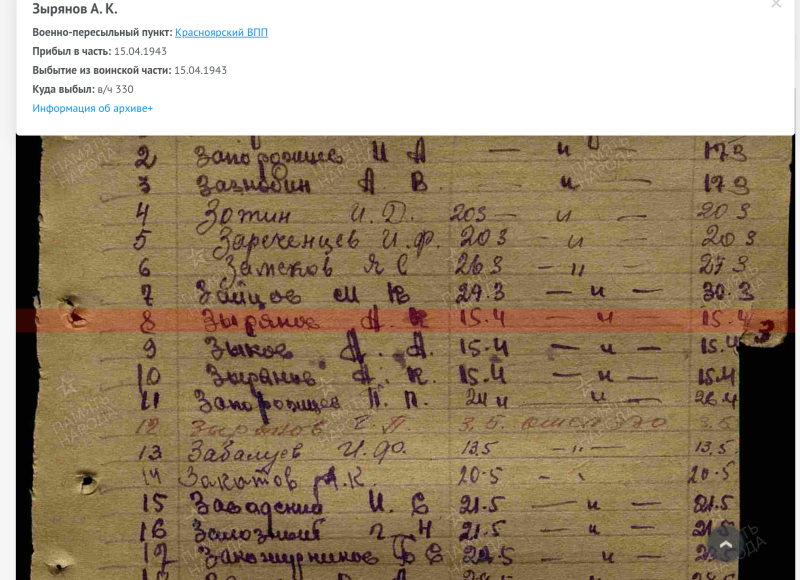 Зырянов А. К.
Военно-пересыльный пункт: Красноярский ВПП
Прибыл в часть: 15.04.1943
Выбытие из воинской части: 15.04.1943
Куда выбыл: в/ч 330
Информация об архиве+
2 Запорожцев И А — и — 17 3
3 Зазнобин А В. и — 17 3
4 Зотин И. Д. 20 3 — и — 20 3
5 Зареченцев И. Ф. 20 3 — и 20 3
6 26 3 — 〃 27 3
7 Зайцев М К 29.3 — и — 30.3
8 Зырянов А. К 15.4 — и — 15.4
9 Зыков А. А. 15.4 — и — 15.4
10 Зырянов А. К. 15.4 — и — 15.4
11 Запорожцев П. П. 24 4 и — 26.4
12 Зырянов Г П. 3.5. 3.5
13 Забалуев И. Ф. 13.5 — 〃 — 13.5
14 Закатов А. К. 20.5 - 20.5
15 Завадский И. С 21.5 — и — 21.5
16 Г. Н 21.5 — и — 21.5
17 Б Е 22.5 — и —